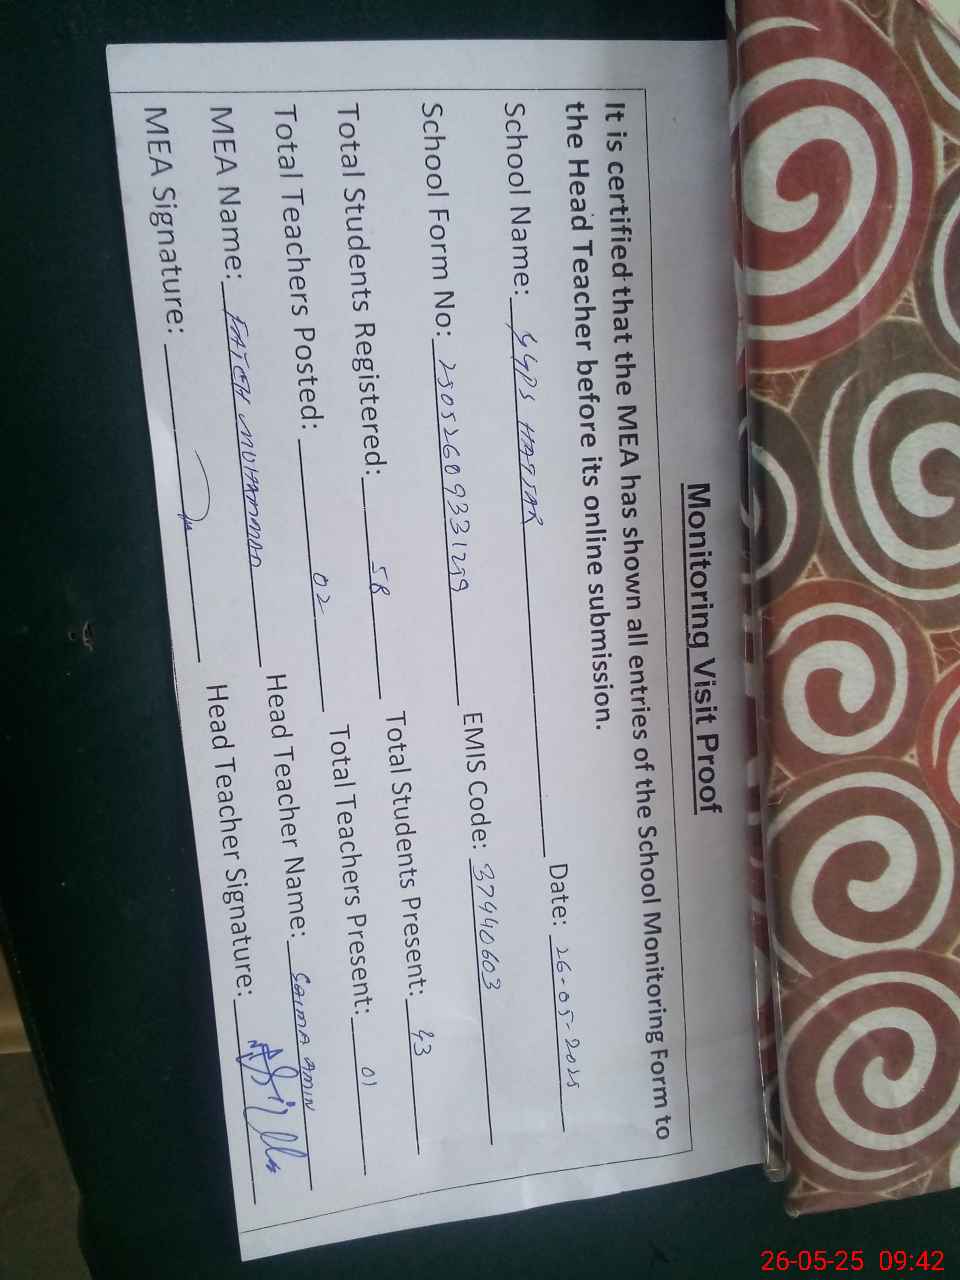 Monitoring Visit Proof
It is certified that the MEA has shown all entries of the School Monitoring Form to
the Head Teacher before its online submission.
School Name: GGPS HATTAR Date: 26-05-2025
School Form No: 25052609331259 EMIS Code: 37440603
Total Students Registered: 58 Total Students Present: 43
Total Teachers Posted: 02 Total Teachers Present: 01
MEA Name: FATEH MUHAMMAD Head Teacher Name: SAIMA AMIN
MEA Signature: Head Teacher Signature:
26-05-25 09:42